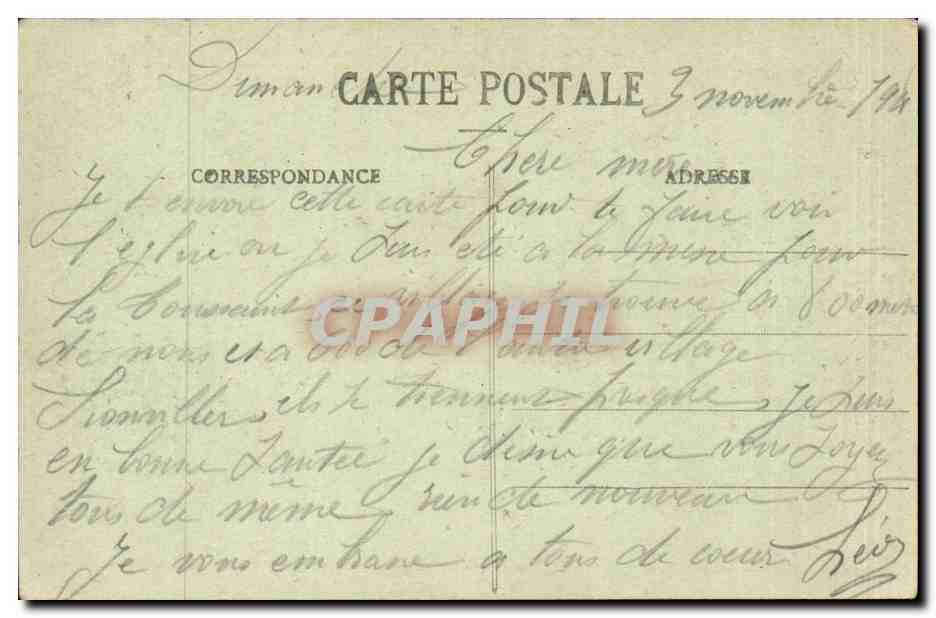 Dimanche CARTE POSTALE 3 novembre
Chere mère
CORRESPONDANCE ADRESSE
Je t envoie cette carte pour te faire voir
l'eglise ou je suis eté a la messe pour
la toussaint ce village se trouve a 800 metre
de nous et a 600 de l'autre village
Sionviller ils se tiennent presque, je suis
en bonne santée je désire que vous soyez
tous de même rien de nouveau
Je vous embrasse a tous de coeur
CPAPHIL